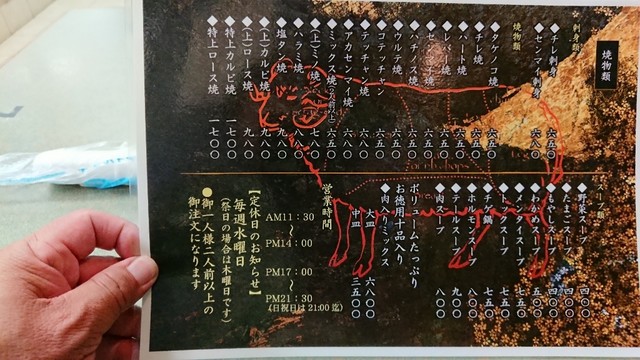 焼物類
刺身類
◆チレ刺身 六五〇
◆センマイ刺身 六八〇
焼物類
◆タケノコ焼 六五〇
◆チレ焼 六五〇
◆ハート焼 六五〇
◆レバー焼 六五〇
◆センマイ焼 六五〇
◆ハチノス焼 六五〇
◆ウルテ焼 六五〇
◆コテッチャン 六五〇
◆テッチャン焼 六五〇
◆アカセンマイ焼 六八〇
◆ミックス焼(二人前以上) 六五〇
◆(上)ミノ焼 七八〇
◆ハラミ焼 八八〇
◆塩タン焼 八八〇
◆(上)カルビ焼 九八〇
◆(上)ロース焼 九八〇
◆特上カルビ焼 一七〇〇
◆特上ロース焼 一七〇〇
スープ類
◆野菜スープ 四〇〇
◆たまごスープ 四〇〇
◆もやしスープ 四〇〇
◆わかめスープ 五〇〇
◆センマイスープ 七五〇
◆トック入スープ 七五〇
◆チゲ鍋 七五〇
◆ホルモンスープ 七五〇
◆テールスープ 九〇〇
◆肉スープ 八〇〇
ボリュームたっぷり
お徳用十品入り
◆肉入りミックス
大皿 六八〇〇
中皿 三五〇〇
営業時間
AM11:30
〜
PM14:00
PM17:00
〜
PM21:30
(日祝日は21:00迄)
【定休日のお知らせ】
毎週水曜日
(祭日の場合は木曜日です)
●御一人様二人前以上の
御注文になります